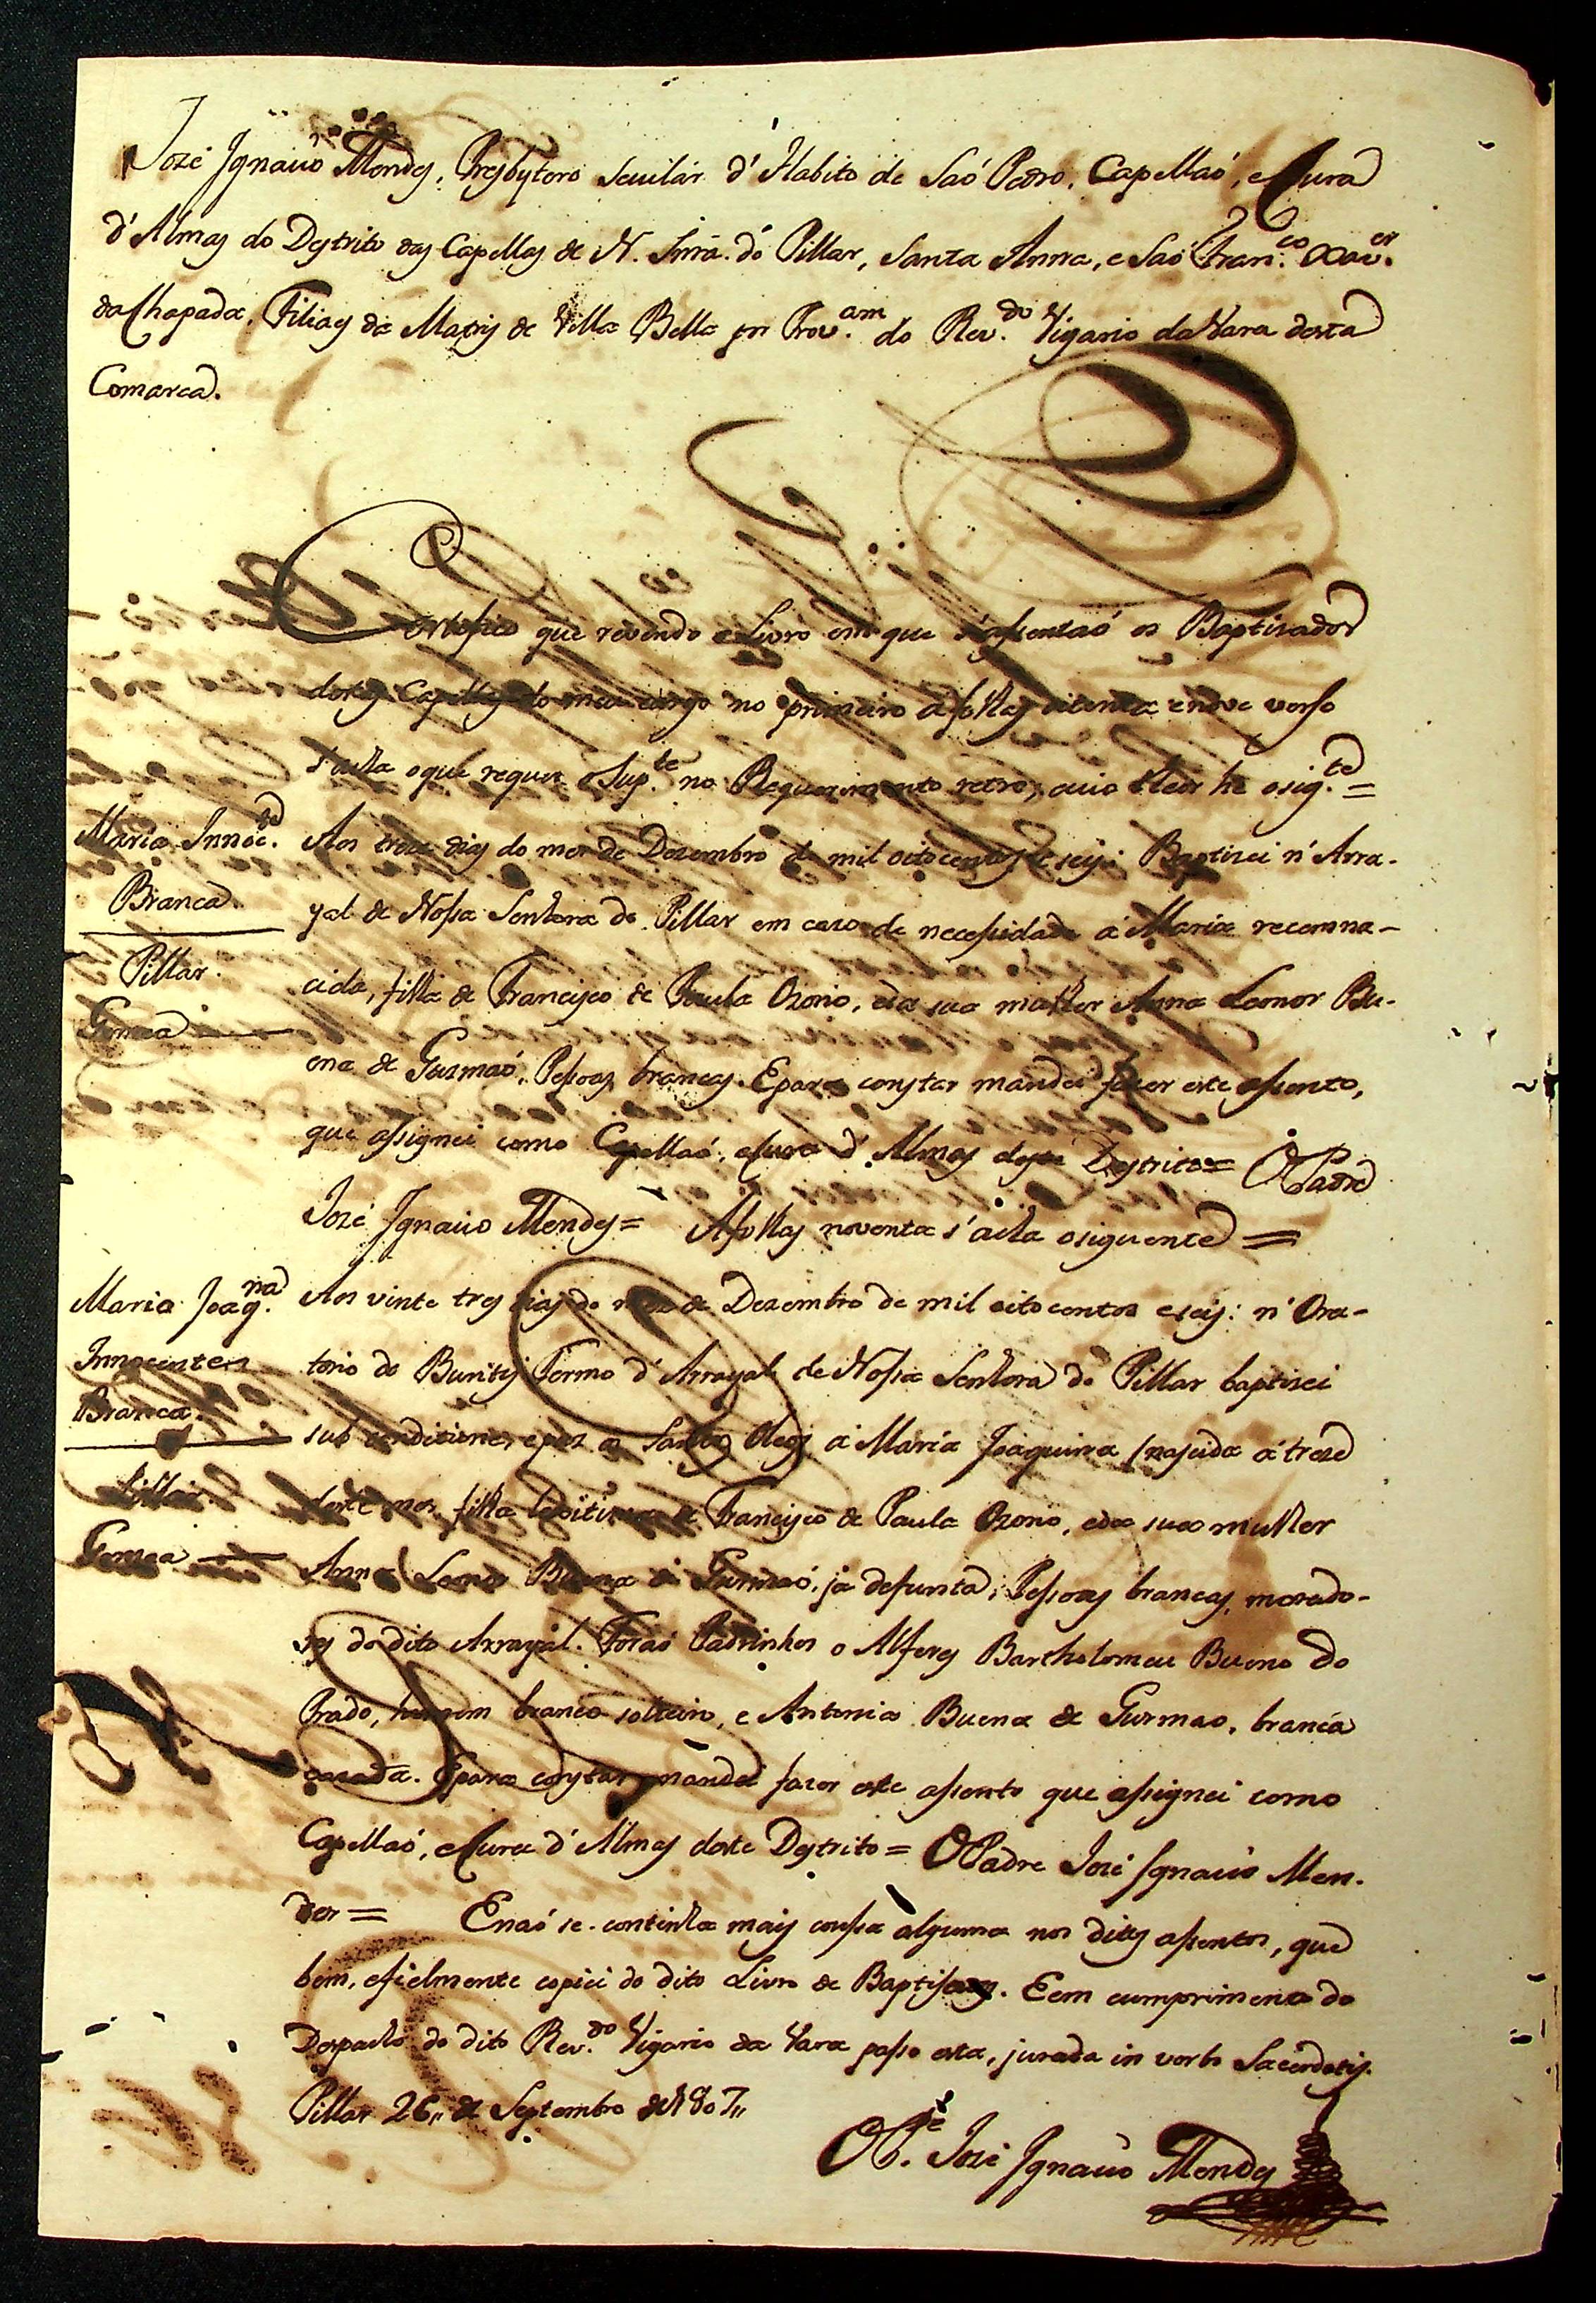 Jozé Ignacio Mendes, Presbytero Secular d' Habito de Saõ Pedro, Capellaõ, e Cura
d'Almas do Destrito das Capellas de N. Snrã. do Pillar, Santa Anna, e Saõ Fran.co Xav.er
da Chapada, Filiaes da Matris de Villa Bella por Prov.am do Rev.do Vigario da Vara desta
Comarca.
Certefico que revendo o Livro em que s'assentaõ os Baptisados
destas Capellas do meu cargo no primeiro a folhas oitenta e nove verso
s'acha o que requer o Sup.te no Requerimento retro, cujo theor he o sig.te =
Maria Innoc.te
Branca.
Pillar.
Gemea
Aos treze dias do mes de Dezembro de mil oito centos e seis: Baptisei n' Arra-
yal de Nossa Senhora do Pillar em cazo de necessidade á Maria recemna-
cida, filha de Francisco de Paula Ozorio, e da sua mulher Anna Leonor Bu-
ena de Gusmaõ, Pessoas brancas. E para constar mandei fazer este assento,
que assignei como Capellaõ, e Cura d' Almas deste Destrito = O Padre
Jozé Ignacio Mendes = A folhas noventa s'acha o siguente =
Maria Joaq.na
Innocente
Branca.
Pillar.
Gemea
Aos vinte tres dias do mes de Dezembro de mil oito centos e seis: n' Ora-
torio do Buritis Termo d' Arrayal de Nossa Senhora do Pillar baptisei
sub conditione, e pus os Santos Oleos a Maria Joaquina, nascida á treze
deste mes, filha legitima de Francisco de Paula Ozorio, e da sua mulher
Anna Leonor Buena de Gusmaõ, já defunta, Pessoas brancas, morado-
res do dito Arrayal. Foraõ Padrinhos o Alferes Bartholomeu Bueno do
Prado, homem branco solteiro, e Antonia Buena de Gusmao, branca
cazada. E para constar mandei fazer este assento que assignei como
Capellaõ, e Cura d' Almas deste Destrito = O Padre Jozé Ignacio Men-
des = E naõ se continha mais coussa alguma nos ditos assentos, que
bem, e fielmente copiei do dito Livro de Baptisados. E em cumprimento do
Despacho do dito Rev.do Vigario da Vara passo esta, jurada in verbo Sacerdotis.
Pillar 26,, de Septembro de 1807,,
O P.e Jozé Ignacio Mendes